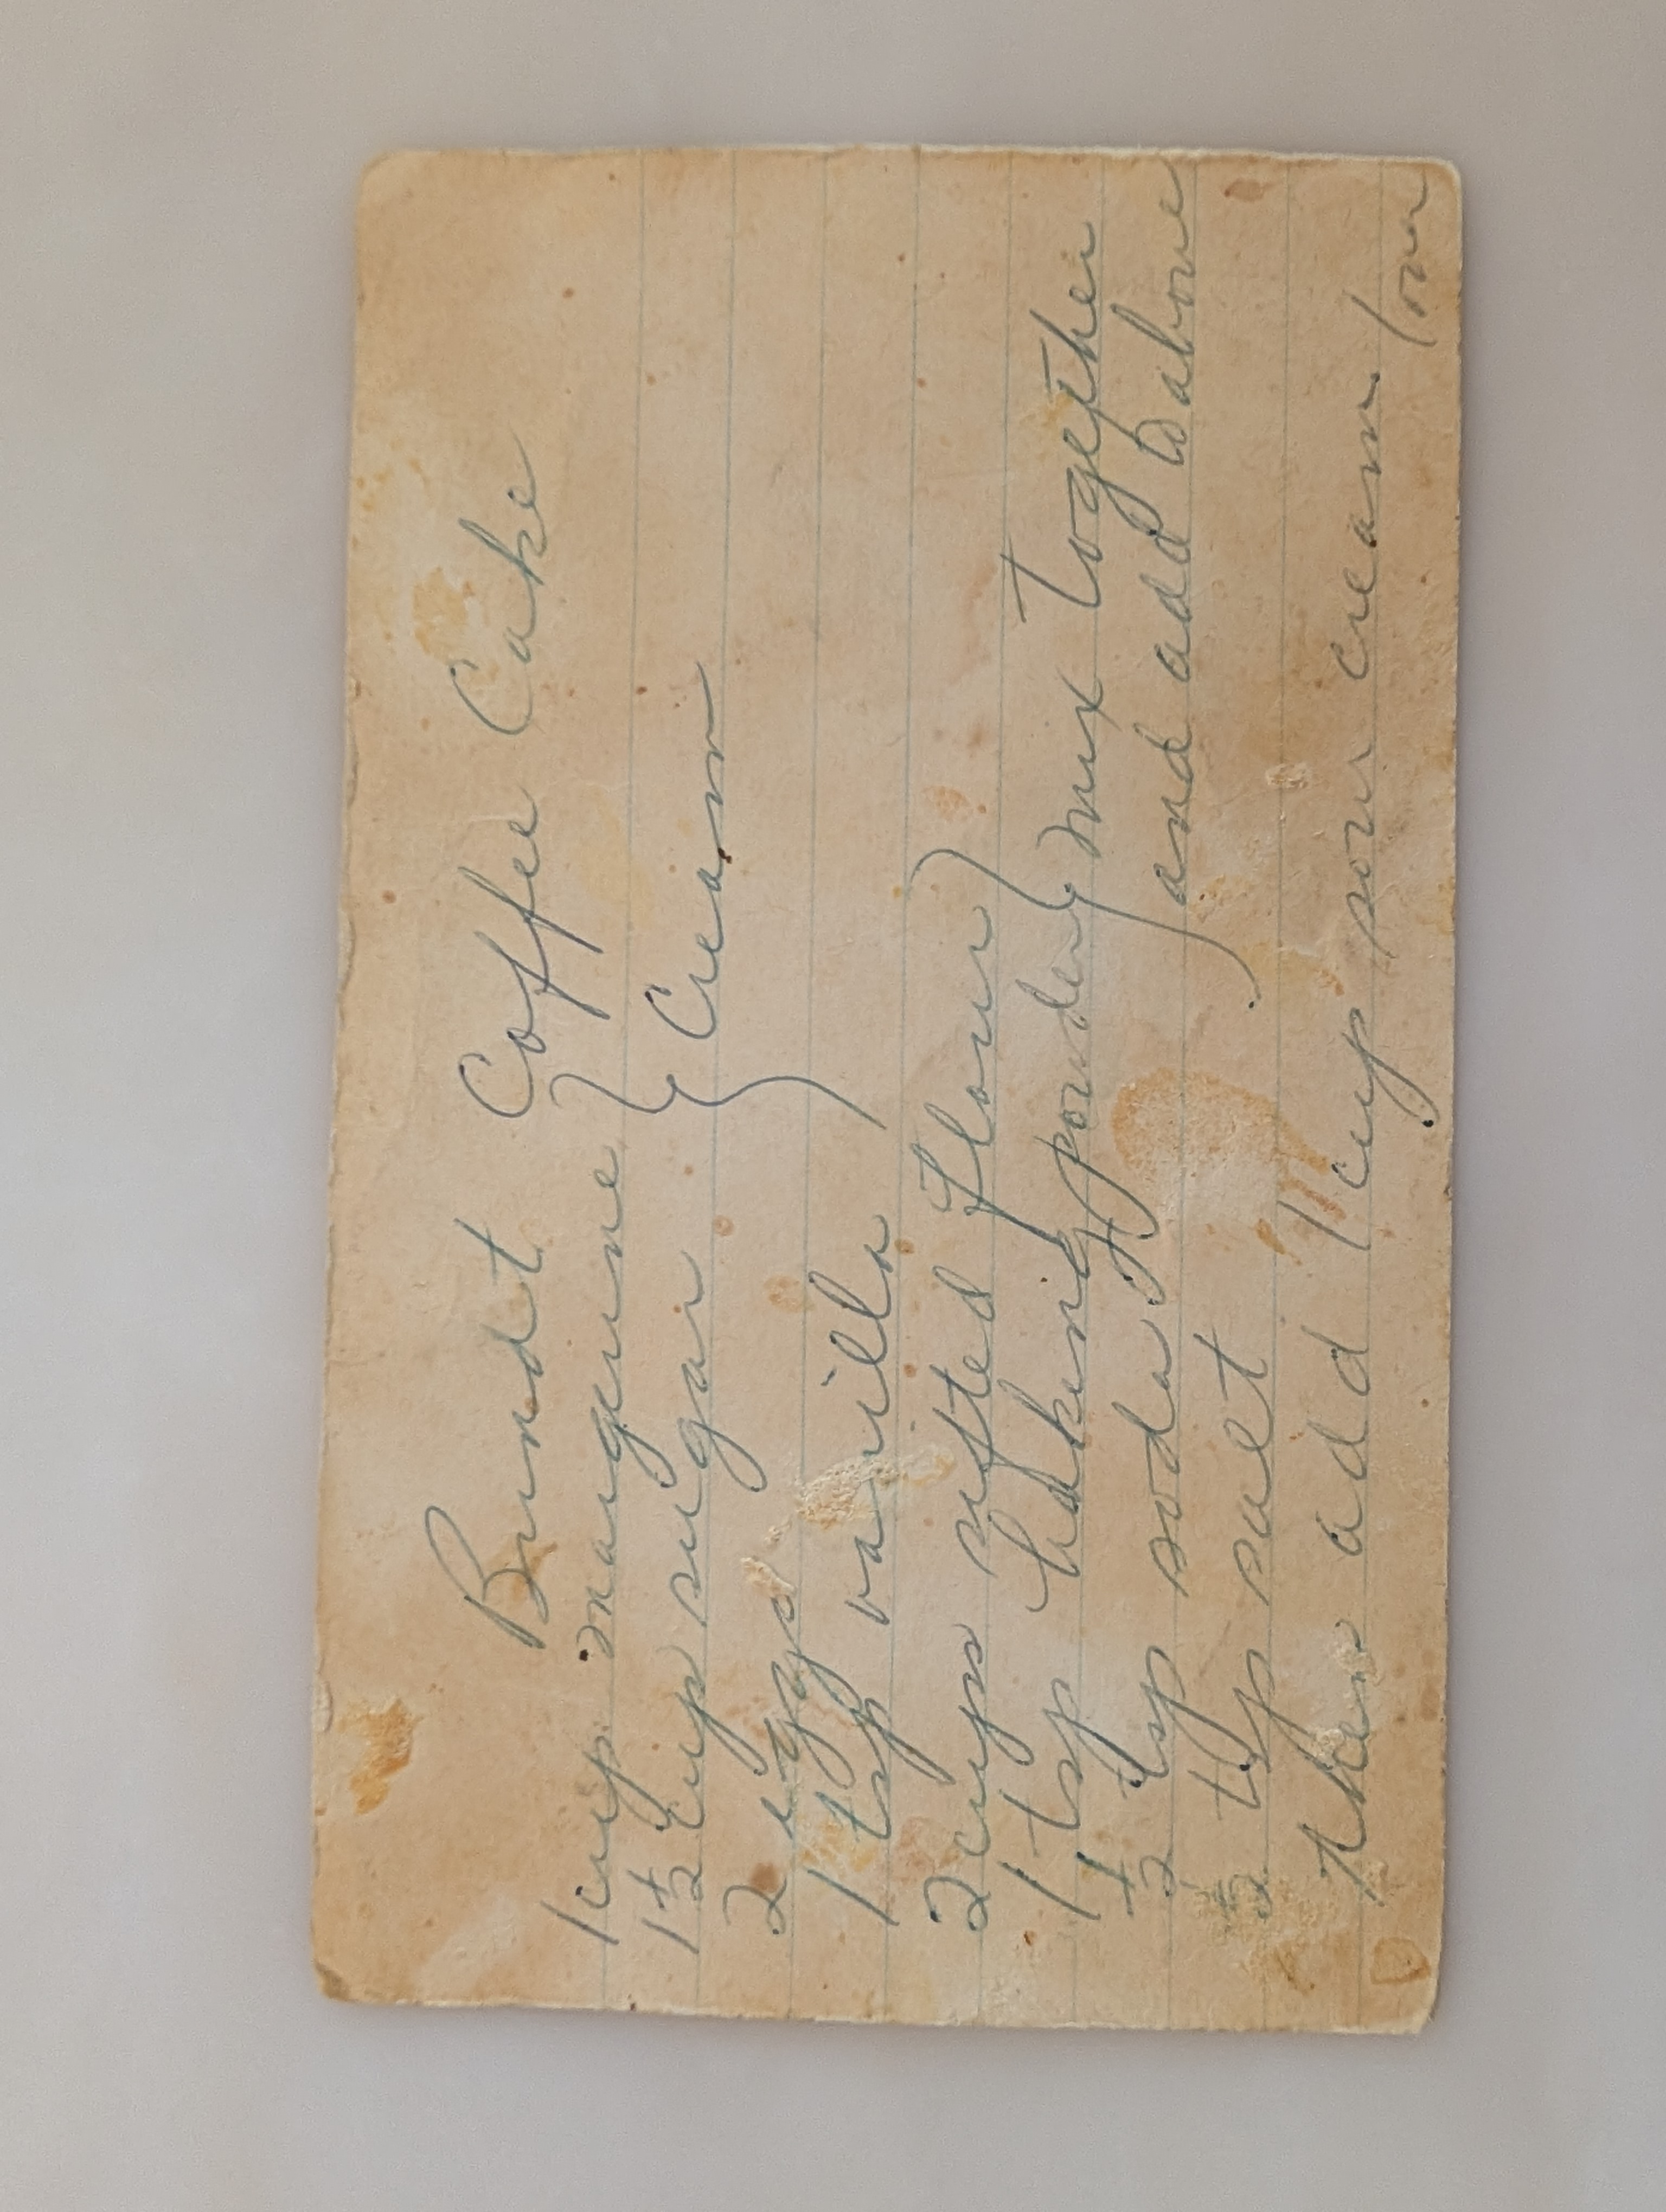 Bundt Coffee Cake
1 cup margerine
1 1/2 cup sugar } Cream
2 eggs
1 tsp vanilla
2 cups sifted flour
1 tsp baking powder } mix together
1/2 tsp soda and add to above
1/2 tsp salt
then add 1 cup sour cream
over